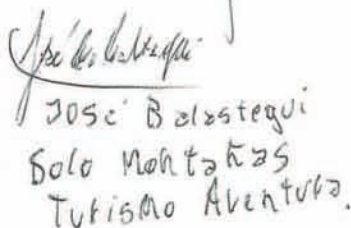 José Balastegui
Solo Montañas
Turismo Aventura.